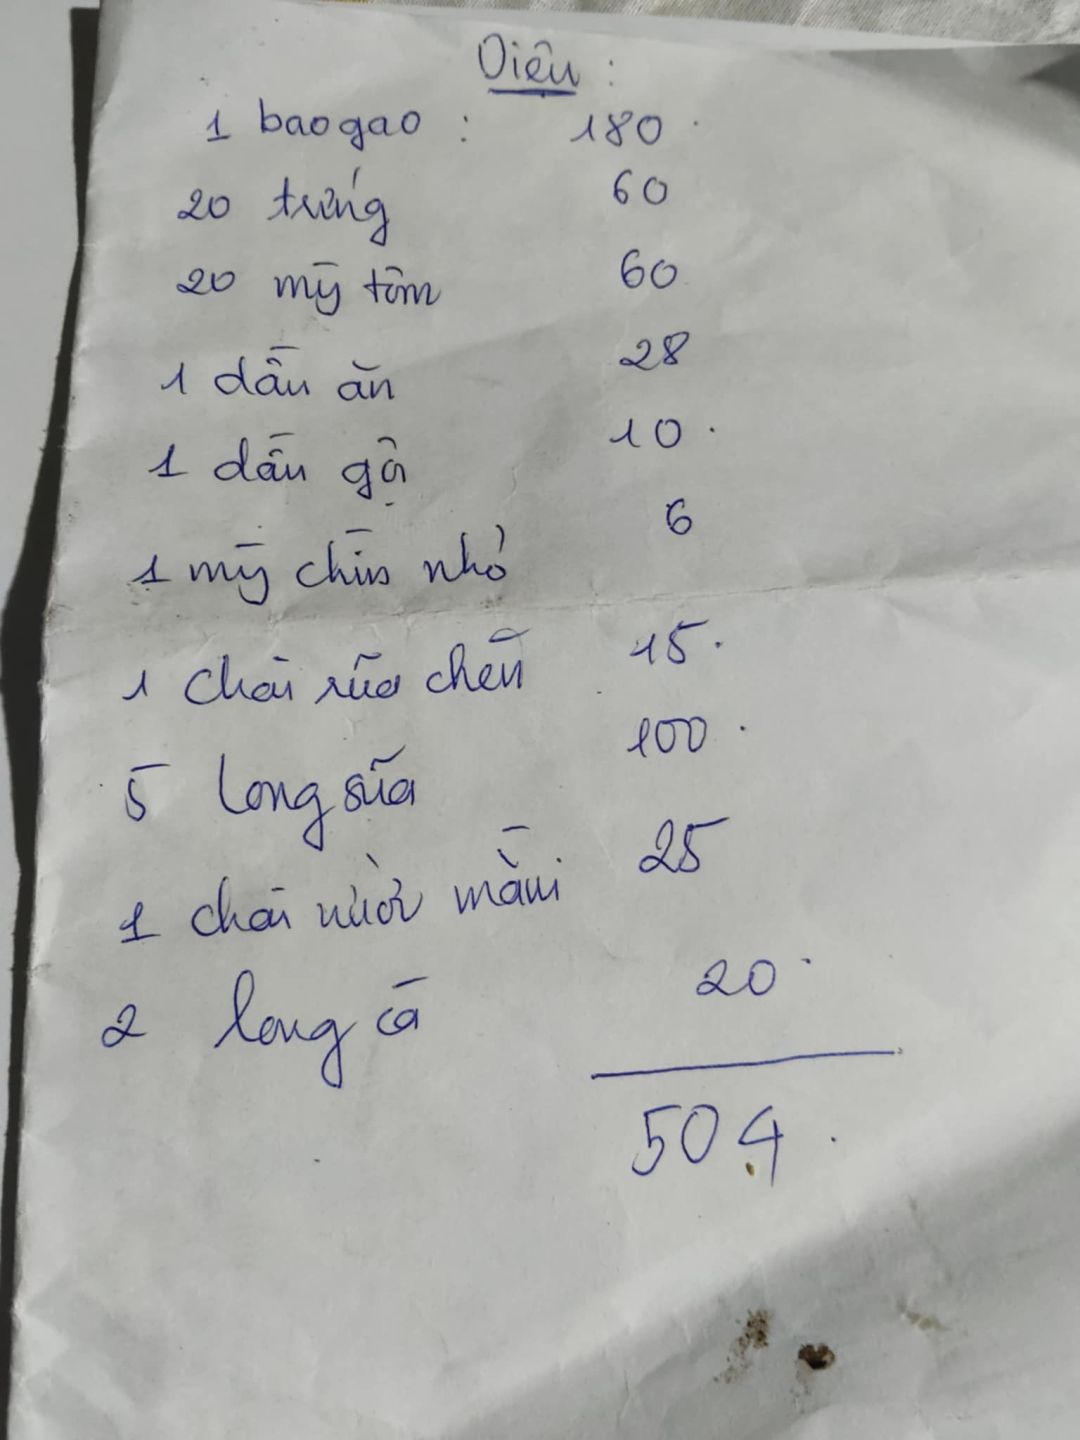 Diệu :
1 bao gạo : 180
20 trứng 60
20 mỳ tôm 60
1 dầu ăn 28
1 dầu gội 10
1 mỳ chín nhỏ 6
1 chai rữa chén 15
5 long sữa 100
1 chai nước mắm 25
2 long cá 20
504